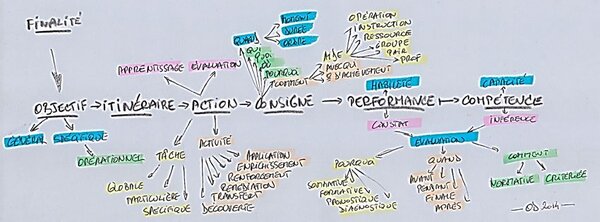 FINALITÉ
OBJECTIF → ITINÉRAIRE → ACTION → CONSIGNE → PERFORMANCE → COMPÉTENCE
GÉNÉRAL
SPÉCIFIQUE
OPÉRATIONNEL
APPRENTISSAGE
ÉVALUATION
TÂCHE
GLOBALE
PARTICULIÈRE
SPÉCIFIQUE
ACTIVITÉ
APPLICATION
ENRICHISSEMENT
RENFORCEMENT
REMÉDIATION
TRANSFERT
DÉCOUVERTE
QUAND
MOMENT
DURÉE
QUI
QUOI
OÙ
POURQUOI
COMMENT
AIDE
AVEC QUI
OPÉRATION
INSTRUCTION
RESSOURCE
GROUPE
PAIR
PROF
HABILETÉ
CONSTAT
CAPACITÉ
INFÉRENCE
ÉVALUATION
POURQUOI
SOMMATIVE
FORMATIVE
PRONOSTIQUE
DIAGNOSTIQUE
QUAND
AVANT
PENDANT
FINALE
APRÈS
COMMENT
NORMATIVE
CRITÉRIÉE
— OD 2014 —